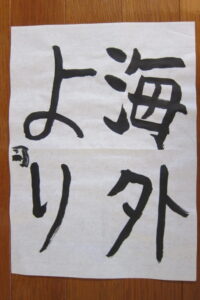 海外
より